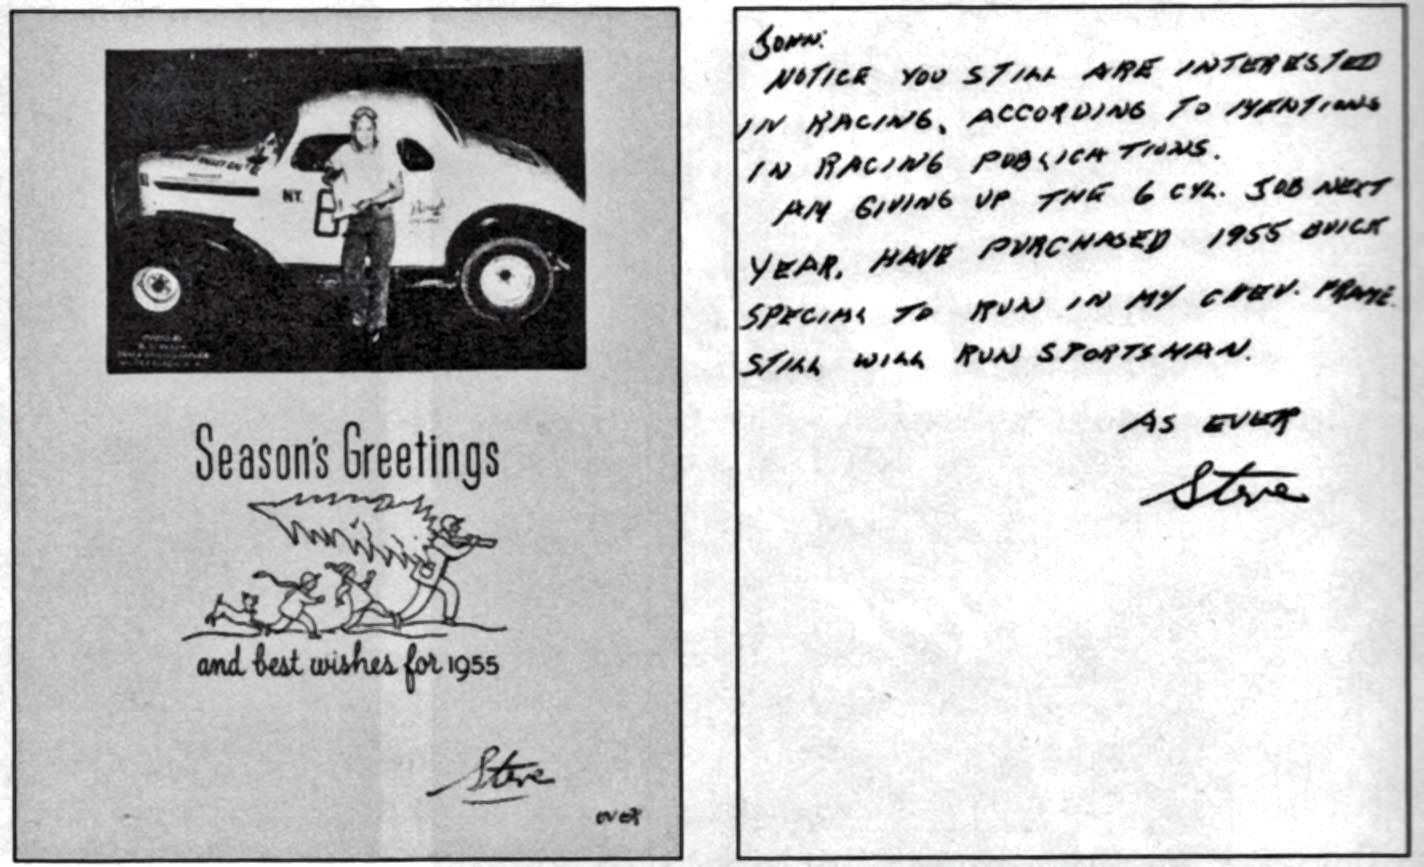 N.Y.
Season's Greetings
and best wishes for 1955
Steve
OVER
JOHN:
NOTICE YOU STILL ARE INTERESTED
IN RACING, ACCORDING TO MENTIONS
IN RACING PUBLICATIONS.
AM GIVING UP THE 6 CYL. JOB NEXT
YEAR, HAVE PURCHASED 1955 BUICK
SPECIAL TO RUN IN MY CHEV. FRAME.
STILL WILL RUN SPORTSMAN.
AS EVER
Steve